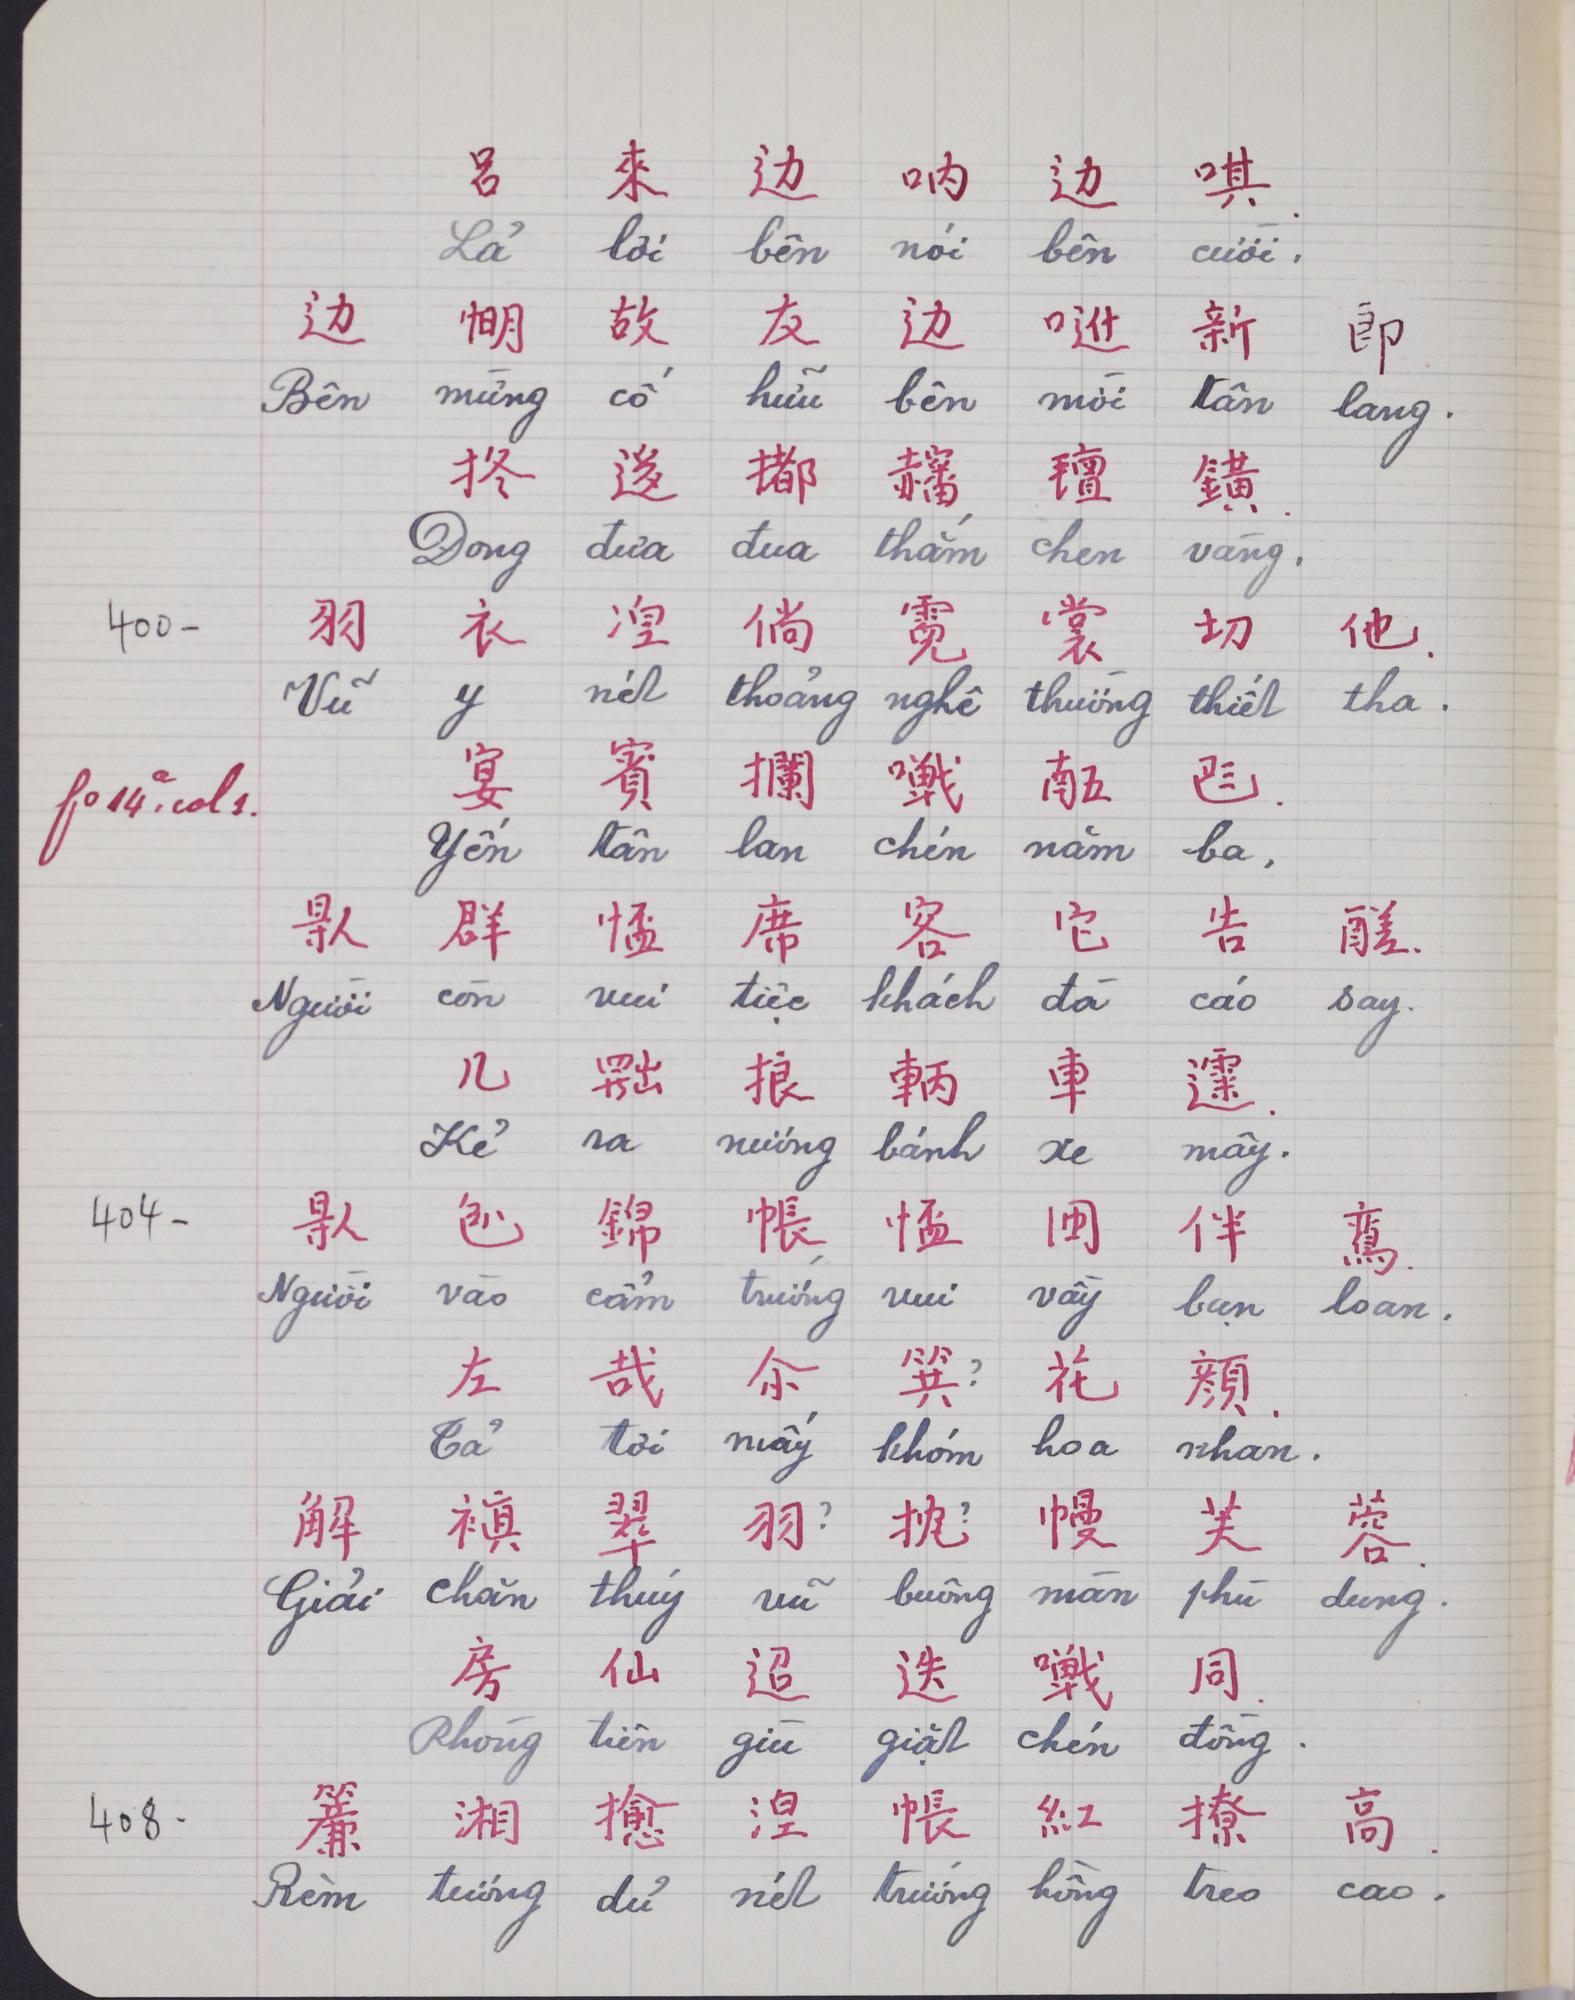 呂 來 边 吶 边 唭.
Lả lơi bên nói bên cười.
边 𢜏 故 友 边 𠶆 新 郎
Bên mừng cố hữu bên mời tân lang.
拸 迻 㨋 䞉 䃪 鐄.
Dong đưa đua thắm chen vàng.
400- 羽 衣 湼 倘 霓 裳 切 他.
Vũ y nét thoảng nghê thường thiết tha.
fo 14a. col 1. 宴 賓 攔 𡃹 𠄼 𠀧.
Yến tân lan chén năm ba.
𠊛 群 𢝙 席 客 它 告 醝.
Người còn vui tiệc khách đã cáo say.
几 𦋦 㫰 輛 車 𩄲.
Kẻ ra nương bánh xe mây.
404- 𠊛 𠓨 錦 帳 𢝙 囲 伴 鸞.
Người vào cẩm trướng vui vầy bạn loan.
左 哉 尒 箕? 花 顔.
Tả tơi mấy khóm hoa nhan.
解 禛 翠 羽? 㧒? 幔 芙 蓉.
Giải chăn thúy vũ buông màn phù dung.
房 仙 迢 迭 𡃹 同.
Phòng tiên giũ giặt chén đồng.
408- 簾 湘 㩽 湼 帳 紅 撩 高.
Rèm tương dử nét trướng hồng treo cao.